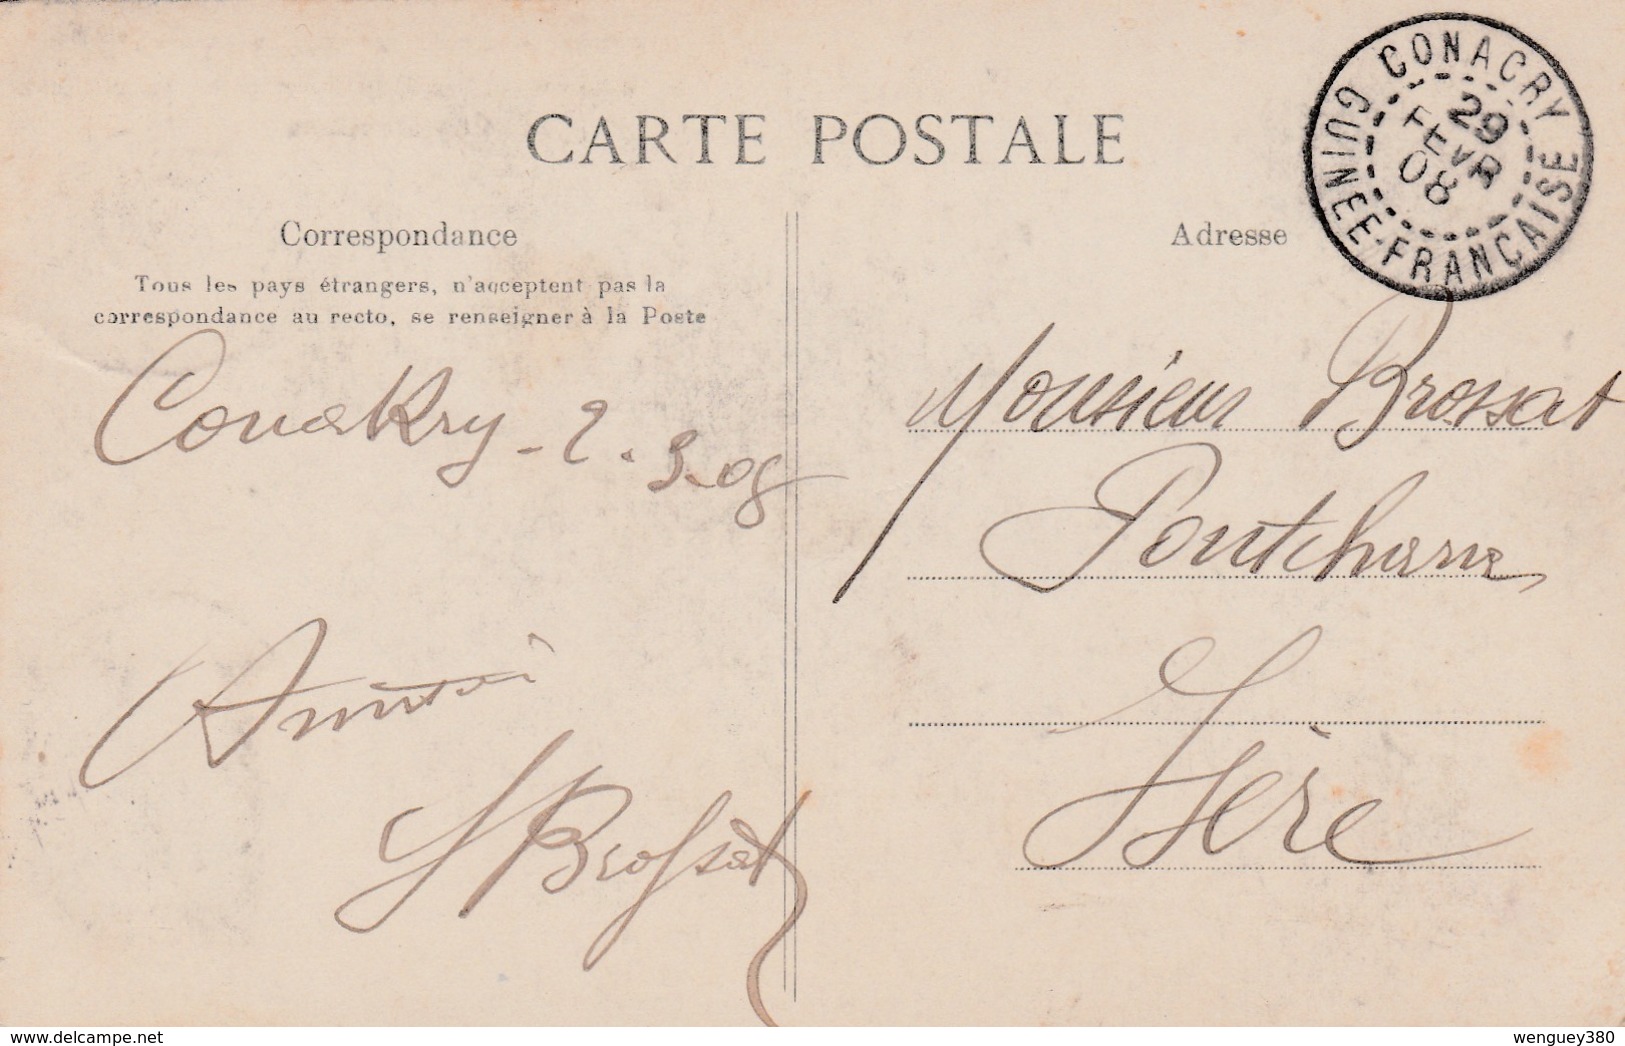 CARTE POSTALE
CONACRY
29
FEVR
08
GUINEE-FRANCAISE
Correspondance
Adresse
Tous les pays étrangers, n'acceptent pas la
correspondance au recto, se renseigner à la Poste
Conakry - 2 . 3 - 08
Monsieur Brossat
Pontcharra
Isère
Brossat
delcampe.net
wenguey380